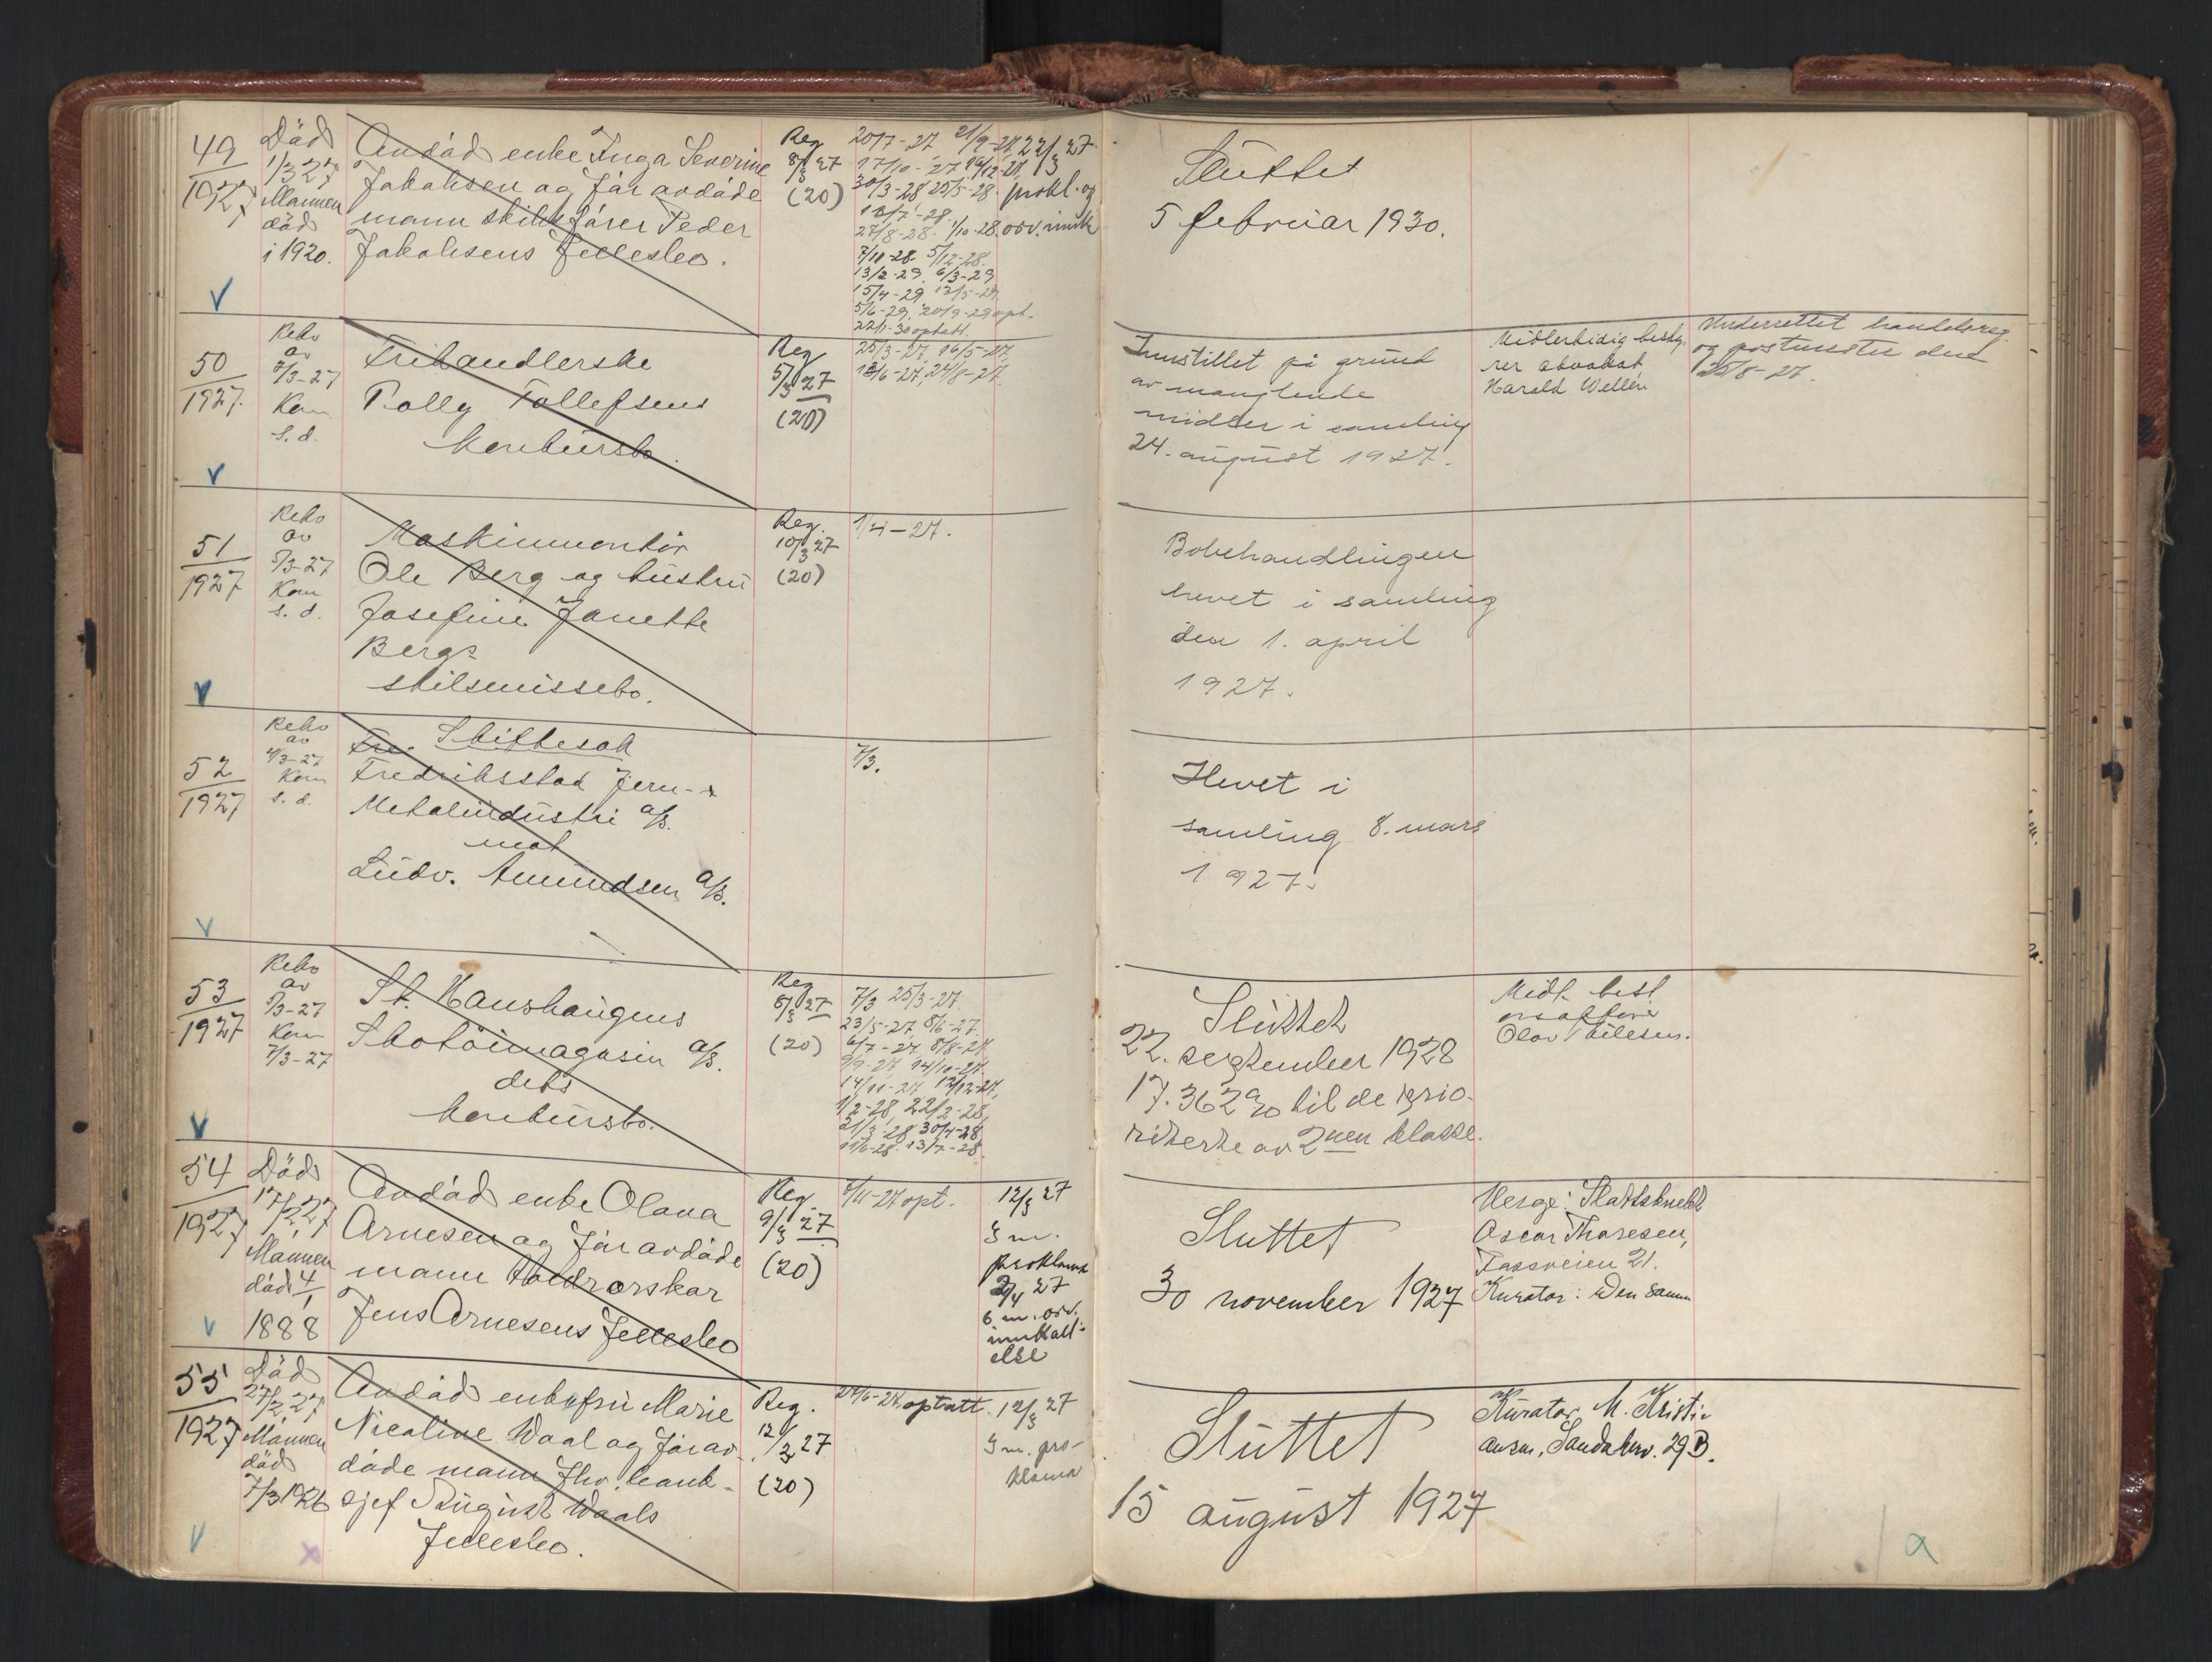 49
1927
Død
1/3 27
Mannen
død
i 1920.
Avdød enke Inga Severine
Jakobsen og før avdøde
mann skibsfører Peder
Jakobsens fellesbo.
Reg
8/3 27
(20)
20/7-27 21/9-27
17/10-27
30/3-28 25/5-28
27/8-28. 1/10-28.
7/11-28. 5/12-28.
13/2-29. 6/3-29
15/4-29 13/5-29
5/6-29. 20/9-29 opt.
22/1-30 optatt.
22/3 27
prokl. og
odv. innk
Sluttet
5 februar 1930.
50
1927.
Rekv
av
Kom
s. d.
Frihandlerske
Polly Tollefsens
konkursbo.
Reg
5/3 27
(20)
25/3-27, 16/5-27,
13/6-27, 24/8-27
Innstillet på grunn
av manglende
midler i samling
24. august 1927.
Midlertidig besty-
rer advokat
Harald Wellén
Underrettet handelsreg.
og postmester den
25/8-27.
51
1927
Rekv
av
5/3-27
Kom
s. d.
Maskinmontør
Ole Berg og hustru
Josefine Janette
Bergs
skilsmissebo.
Reg.
10/3 27
(20)
1/4-27.
Bobehandlingen
hevet i samling
den 1. april
1927.
52
1927
Rekv
av
4/3-27
Kom
s. d.
Fre. Skiftesak
Fredriksstad Jern- &
Metalindustri a/s.
mot
Ludv. Amundsen a/s.
7/3.
Hevet i
samling 8. mars
1927.
53
1927
Rekv
av
5/3-27
Kom
7/3-27
St. Hanshaugens
Skotøimagasin a/s.
dets
konkursbo.
Reg
8/3 27
(20)
7/3 25/3-27
23/5-27 8/6-27.
6/7-27, 8/8-27.
9/9-27 14/10-27.
14/11-27 12/12-27,
1/2-28, 22/2-28,
21/3-28 30/4-28
11/6-28. 13/7-28.
Sluttet
22. september 1928
17.362 % til de prio-
riterte av 2nen klasse.
Midl. best
Olav
54
1927
Død
17/2 27
Mannen
død 4/1
1888
Avdød enke Olava
Arnesen og før avdøde
mann
Jens Arnesens fellesbo
Reg.
9/3 27
(20)
7/11-27 opt.
12/3 27
3 m.
proklama
2/4 27
6 m. odv.
innkall-
else
Sluttet
30 november 1927
Verge: Slaktsknekt
Oscar Thoresen,
21.
Kurator: Den samme
55
1927
Død
27/2 27
Mannen
død
7/3 1926
Avdød enkefru Marie
Nicoline Waal og før av-
døde mann fhv. bank-
sjef August Waals
fellesbo.
Reg.
12/3 27
(20)
27/6-27 optatt.
12/3 27
3 m. pro-
klama
Sluttet
15 august 1927
Kurator M. Kristi-
ansen, Sandakerv. 29 B.
a